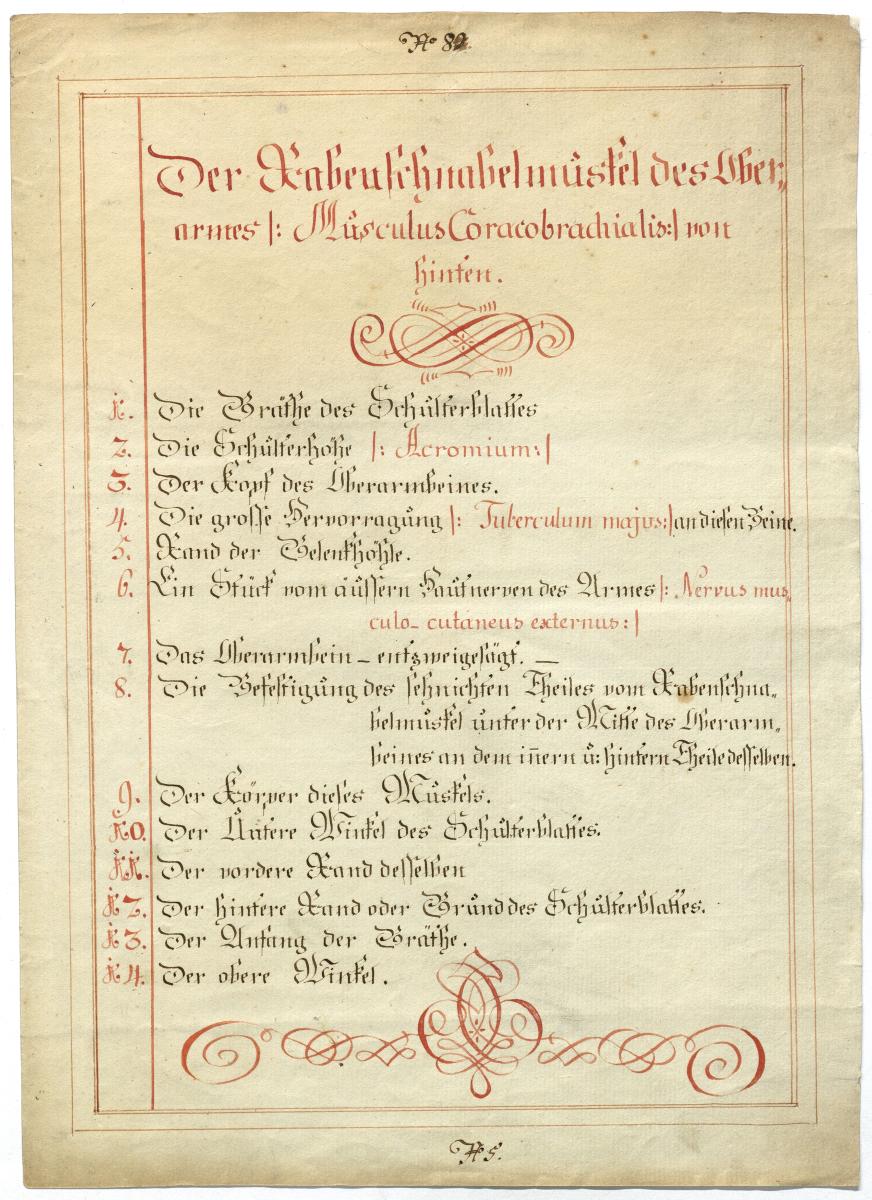 No 82.
Der Rabenschnabelmuskel des Ober„
armes |: Musculus Coracobrachialis:| von
hinten.
1. Die Gräthe des Schulterblattes
2. Die Schulterhöhe |: Acromium:|
3. Der Kopf des Oberarmbeines.
4. Die grosse Hervorragung |: Tuberculum majus:| an diesen Beine.
5. Rand der Gelenkhöhle.
6. Ein Stück vom äussern Hautnerven des Armes |: Nervus mus„
culo- cutaneus externus:|
7. Das Oberarmbein – entzweigesägt. —
8. Die Befestigung des sehnichten Theiles vom Rabenschna„
belmuskel unter der Mitte des Oberarm„
beines an dem in̄ern u: hintern Theile desselben.
9. Der Körper dieses Muskels.
10. Der Untere Winkel des Schulterblattes.
11. Der vordere Rand desselben
12. Der hintere Rand oder Grund des Schulterblattes.
13. Der Anfang der Gräthe.
14. Der obere Winkel.